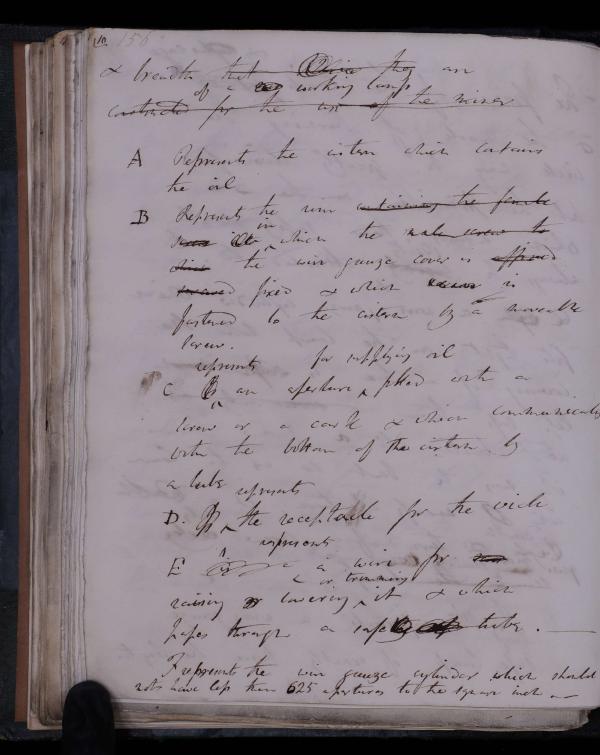 156
& breadth that Since they are
of a working lamp
constructed for the use of the miner
A Represents the cistern which contains
the oil
B Represents the rim containing the female
in
which the male screw to
the wire gauze cover is
fixed & which is
fastened to the cistern by a moveable
screw.
represents for supplying oil
C Is an aperture fitted with a
screw or a cork & which communicates
with the bottom of the cistern by
a tube
represents
D. Is the receptacle for the wick
represents
E is a wire for
or trimming
raising or lowering it & which
passes through a safety tube.
F represents the wire gauze cylinder which should
not have less than 625 apertures to the square inch